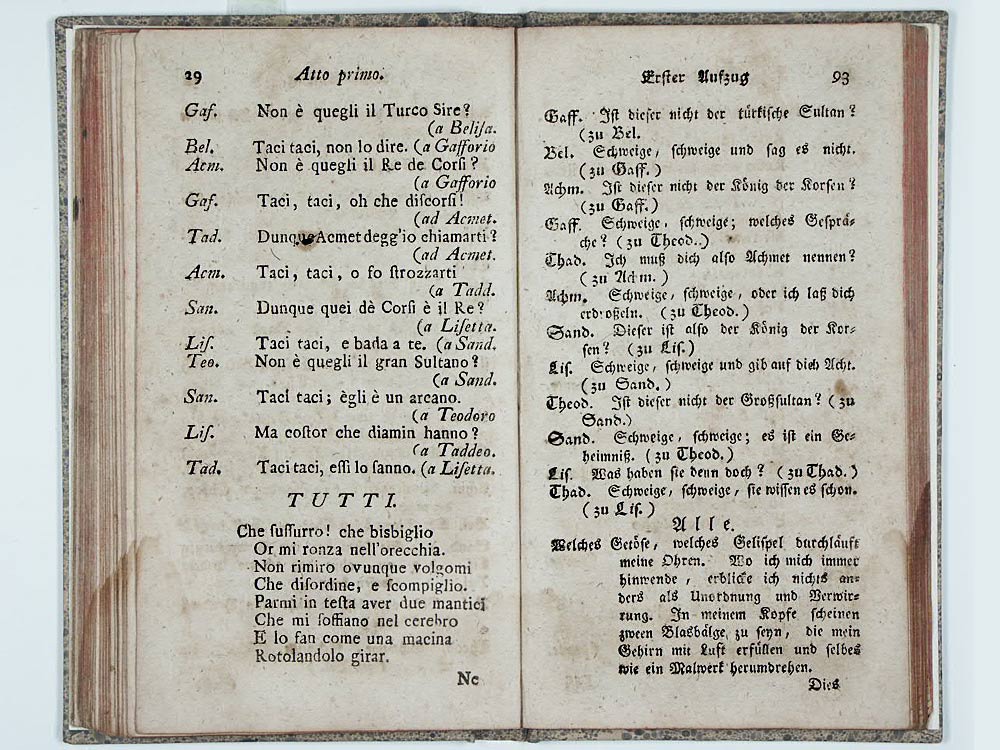 29 Atto primo.
Gaf. Non è quegli il Turco Sire?
(a Beliſa.
Bel. Taci taci, non lo dire. (a Gafforio
Acm. Non è quegli il Re de Corſi?
(a Gafforio
Gaf. Taci, taci, oh che diſcorſi!
(ad Acmet.
Tad. Dunque Acmet degg'io chiamarti?
(ad Acmet.
Acm. Taci, taci, o fo ſtrozzarti
(a Tadd.
San. Dunque quei dè Corſi è il Re?
(a Liſetta.
Liſ. Taci taci, e bada a te. (a Sand.
Teo. Non è quegli il gran Sultano?
(a Sand.
San. Taci taci; ègli è un arcano.
(a Teodoro
Liſ. Ma coſtor che diamin hanno?
(a Taddeo.
Tad. Taci taci, eſſi lo ſanno. (a Liſetta.
TUTTI.
Che ſuſſurro! che bisbiglio
Or mi ronza nell'orecchia.
Non rimiro ovunque volgomi
Che diſordine, e ſcompiglio.
Parmi in teſta aver due mantici
Che mi ſoffiano nel cerebro
E lo fan come una macina
Rotolandolo girar.
Ne
Erſter Aufzug 93
Gaff. Iſt dieſer nicht der türkiſche Sultan?
(zu Bel.
Bel. Schweige, ſchweige und ſag es nicht.
(zu Gaff.)
Achm. Iſt dieſer nicht der König der Korſen?
(zu Gaff.)
Gaff. Schweige, ſchweige; welches Geſprä⸗
che? (zu Theod.)
Thad. Ich muß dich alſo Achmet nennen?
(zu Achm.)
Achm. Schweige, ſchweige, oder ich laß dich
erdroßeln. (zu Theod.)
Sand. Dieſer iſt alſo der König der Kor⸗
ſen? (zu Liſ.)
Liſ. Schweige, ſchweige und gib auf dich Acht.
(zu Sand.)
Theod. Iſt dieſer nicht der Großſultan? (zu
Sand.)
Sand. Schweige, ſchweige; es iſt ein Ge⸗
heimniß. (zu Theod.)
Liſ. Was haben ſie denn doch? (zu Thad.)
Thad. Schweige, ſchweige, ſie wiſſen es ſchon.
(zu Liſ.)
Alle.
Welches Getöſe, welches Geliſpel durchläuft
meine Ohren. Wo ich mich immer
hinwende, erblicke ich nichts an⸗
ders als Unordnung und Verwir⸗
rung. In meinem Kopfe ſcheinen
zween Blasbälge zu ſeyn, die mein
Gehirn mit Luft erfüllen und ſelbes
wie ein Malwerk herumdrehen.
Dies